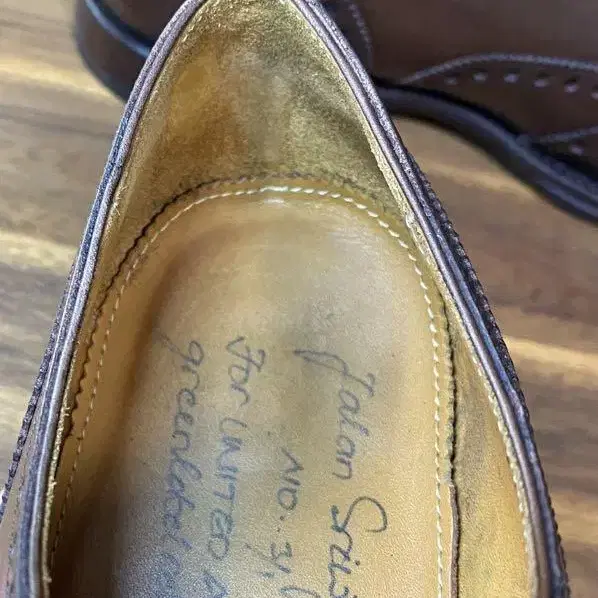 Jalan
NO. 31
For UNITED A
greenlabel